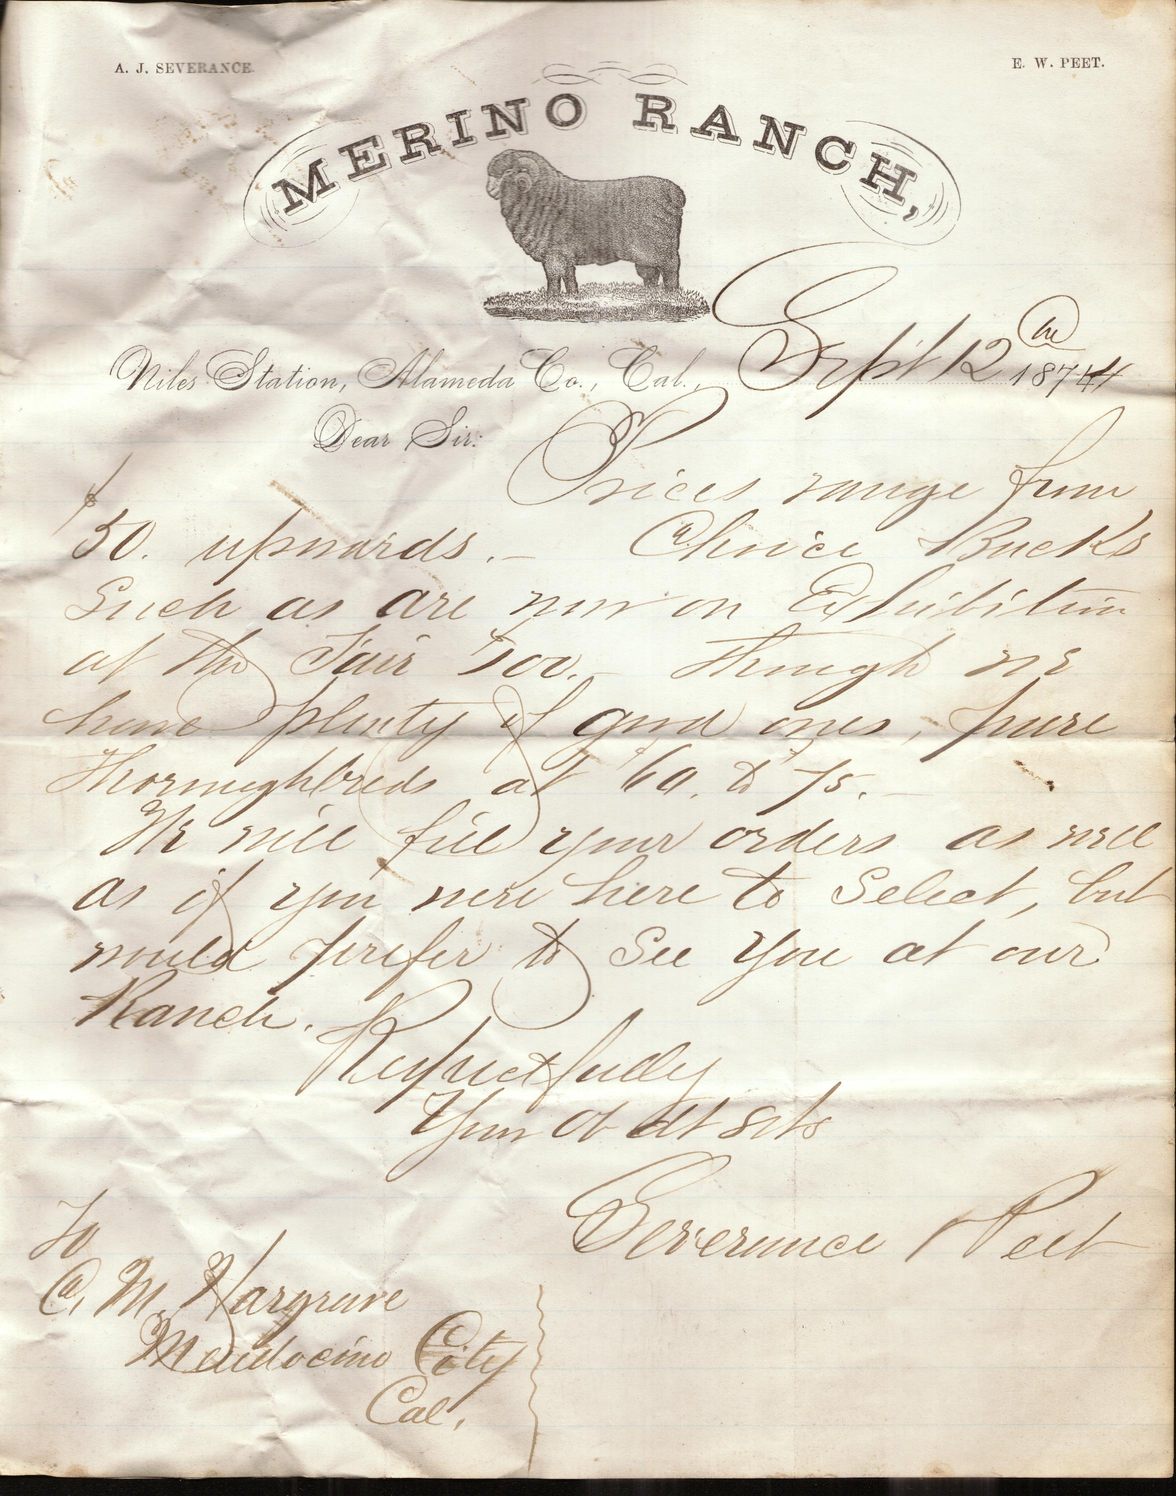 A. J. SEVERANCE. E. W. PEET.
MERINO RANCH,
Niles Station, Alameda Co., Cal., Sept 12 1874
Dear Sir: Prices range from
$50. upwards. – Choice Bucks
Such as are now on Exhibition
at the Fair $100. – though we
have plenty of good ones, pure
thoroughbreds at $60. to $75. –
We will fill your orders as well
as if you were here to Select, but
would prefer to See you at our
Ranch.
Respectfully
Your Ob dt Svts
Severance & Peet
To
C. M. Hargrave
Mendocino City
Cal.